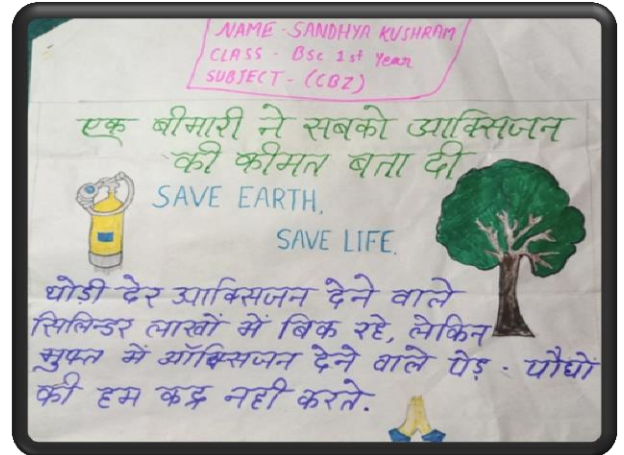 NAME - SANDHYA KUSHRAM
CLASS - BSc 1st Year
SUBJECT - (CBZ)
एक बीमारी ने सबको आक्सिजन
की कीमत बता दी
SAVE EARTH,
SAVE LIFE.
थोडी देर आक्सिजन देने वाले
सिलिन्डर लाखों में बिक रहे, लेकिन
मुफ्त में ऑक्सिजन देने वाले पेड़ - पौधों
की हम कद्र नही करते.